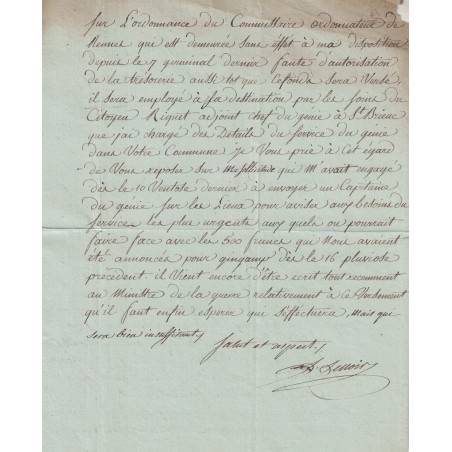 sur L'ordonnance du Commissaire ordonnateur de
Rennes qui est demeurée sans effet à ma disposition
depuis le 7 germinal dernier faute d'autorisation
de la trésorerie aussi tot que ce fonds sera Versé
il sera employé à sa destination par les soins du
Citoyen Riquet adjoint Chef du génie à St Brieuc
que j'ai chargé des Details du service du génie
dans Votre Commune je Vous prie à cet égard
de Vous reposer sur ma sollicitude qui m'avait engagé
dès le 10 Ventose dernier à envoyer un Capitaine
du génie sur les Lieux pour aviser aux besoins du
service les plus urgents aux quels on pourrait
faire face avec les 600 francs qui nous avaient
été annoncés pour guingamp dès le 16 pluviose
précédent. il Vient encore d'être ecrit tout recemment
au Ministre de la guerre relativement à ce Versement
qu'il faut enfin esperer qui s'effectuera, mais qui
sera bien insuffisant,
Salut et respect,
Lenoir